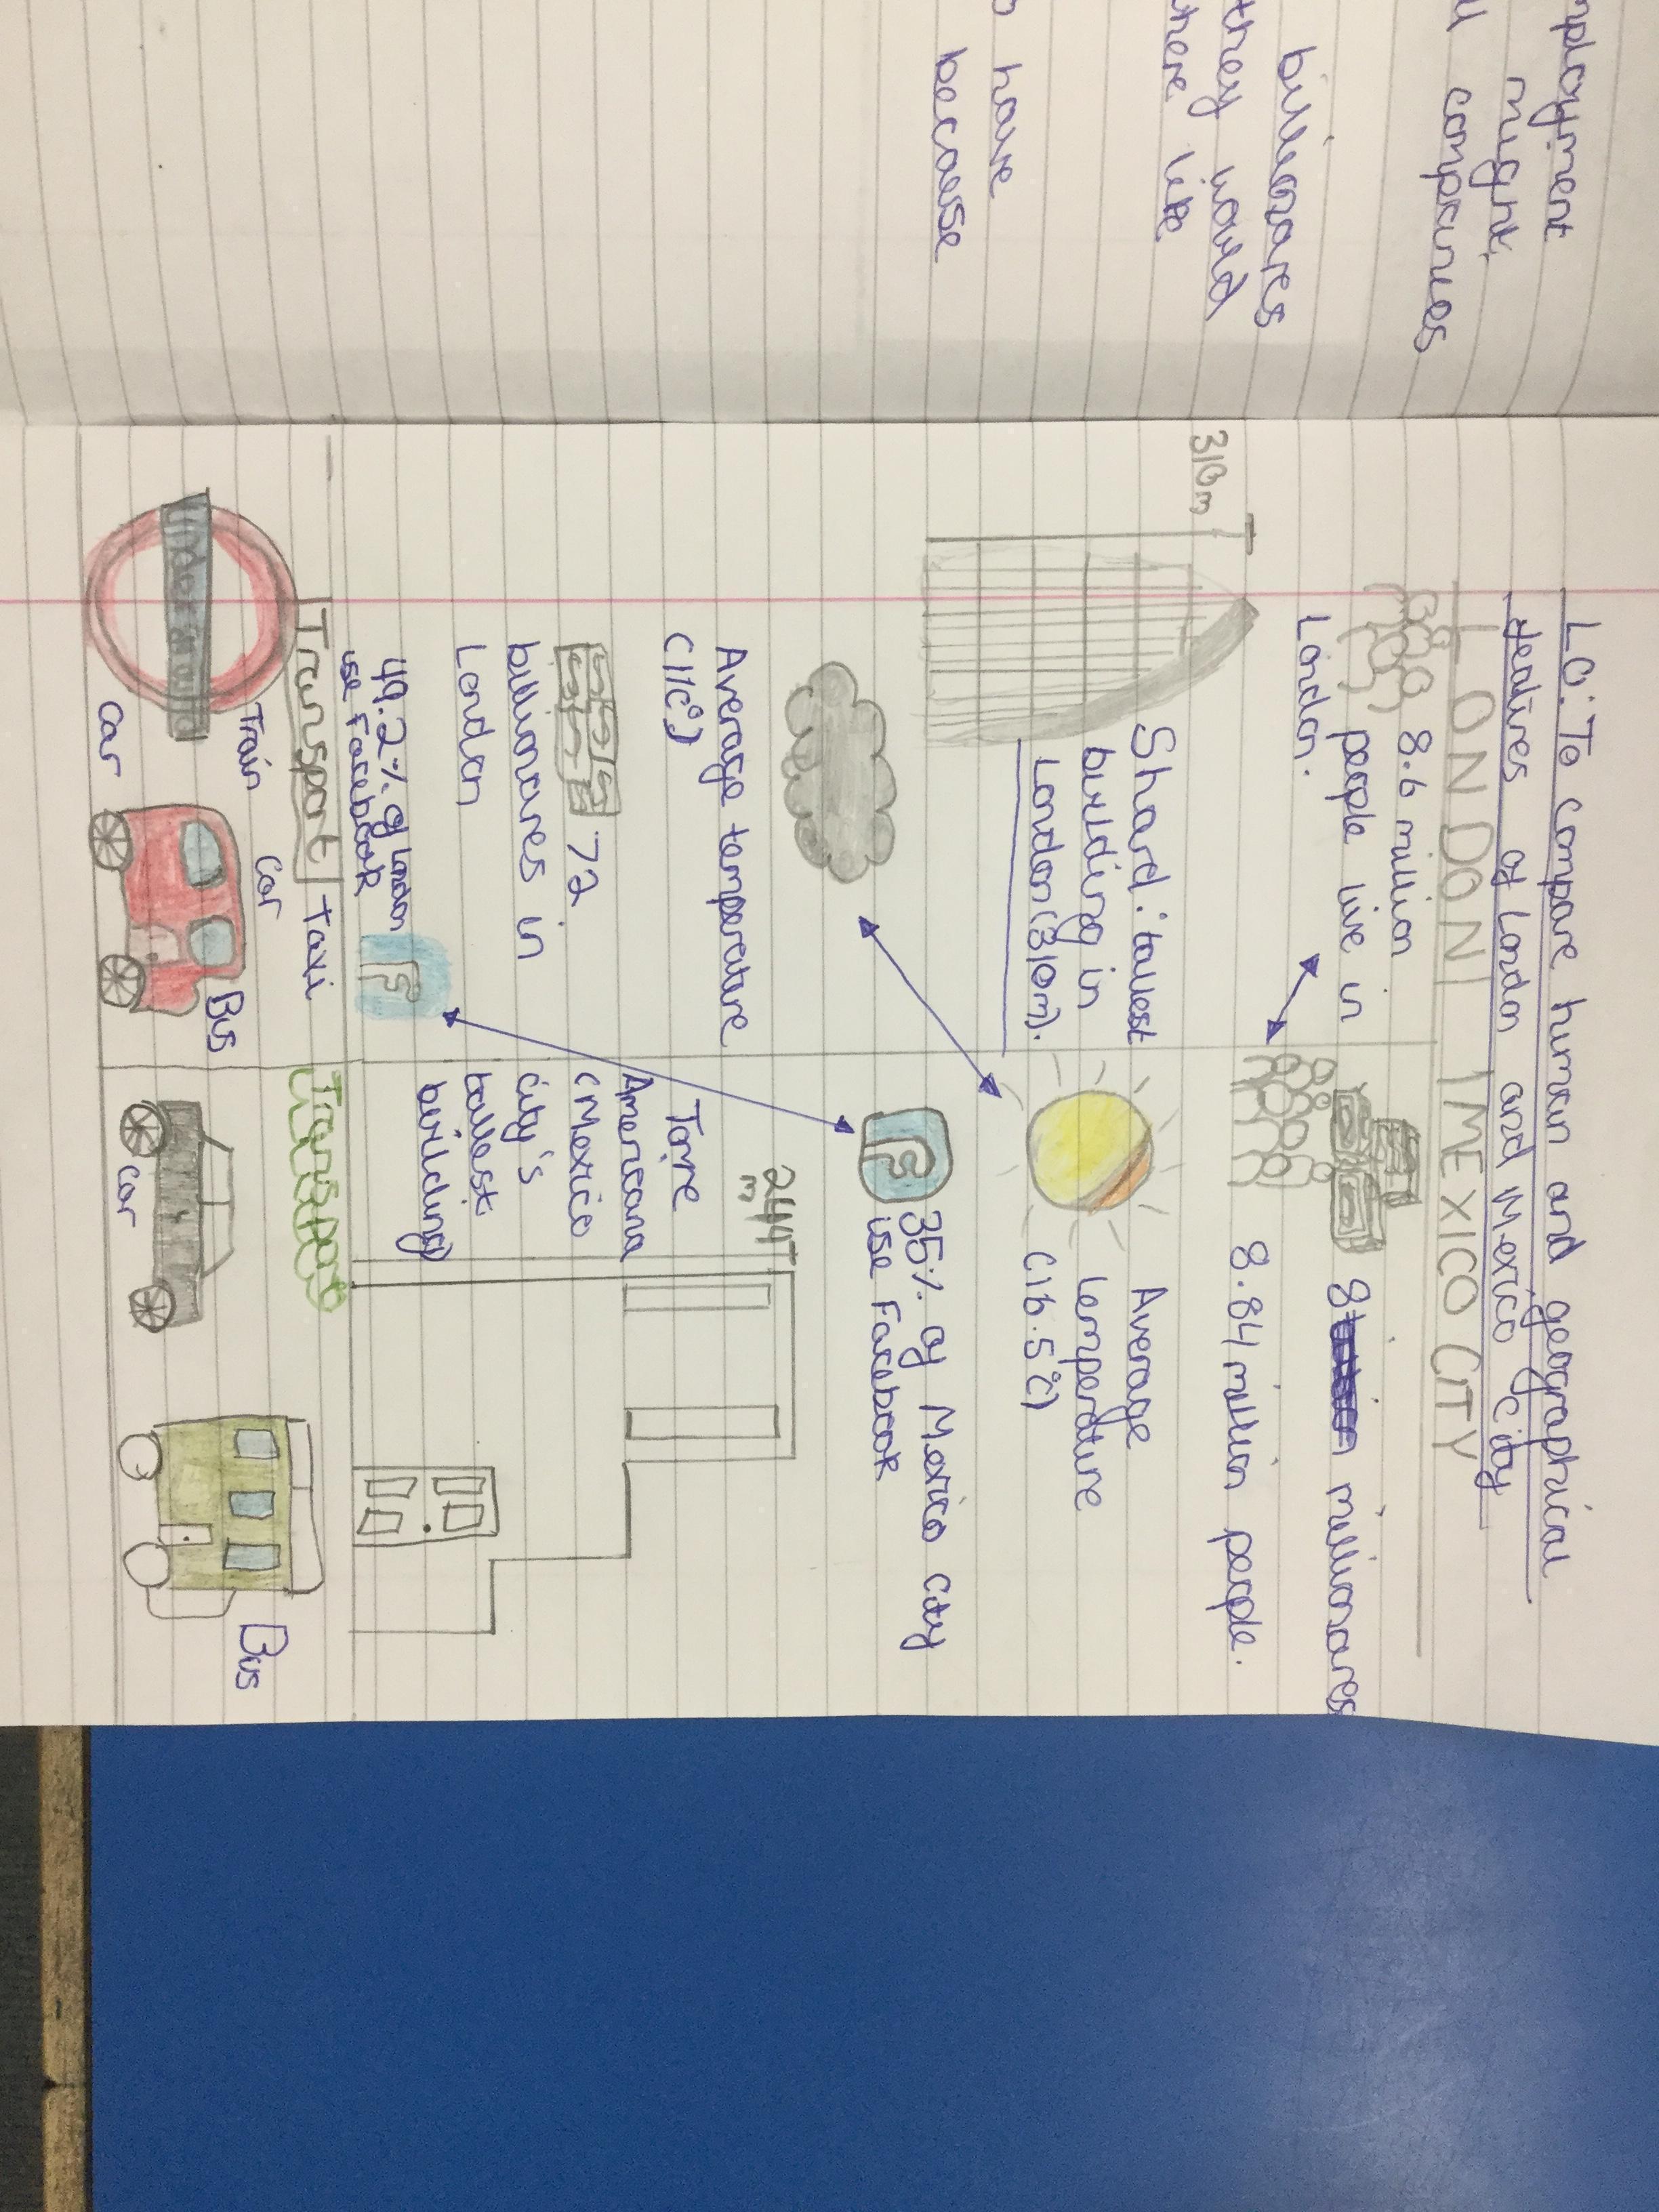 mployment
might
companies
billionares
they would
there like
have
because
L.O: To compare human and geographical
features of London and Mexico City
LONDON
8.6 million
people live in
London.
310m
Shard: tallest
building in
London (310m).
Average temperature
(11c°)
72
billionares in
London
49.2% of London
use Facebook
F
Transport
Taxi
Underground
Train
Car
Car
Bus
MEXICO CITY
8
millionares
8.84 million people.
Average
temperature
(16.5°c)
F
35% of Mexico City
use Facebook
244
m
Torre
Americana
(Mexico
city's
tallest
building)
Transport
Car
Bus